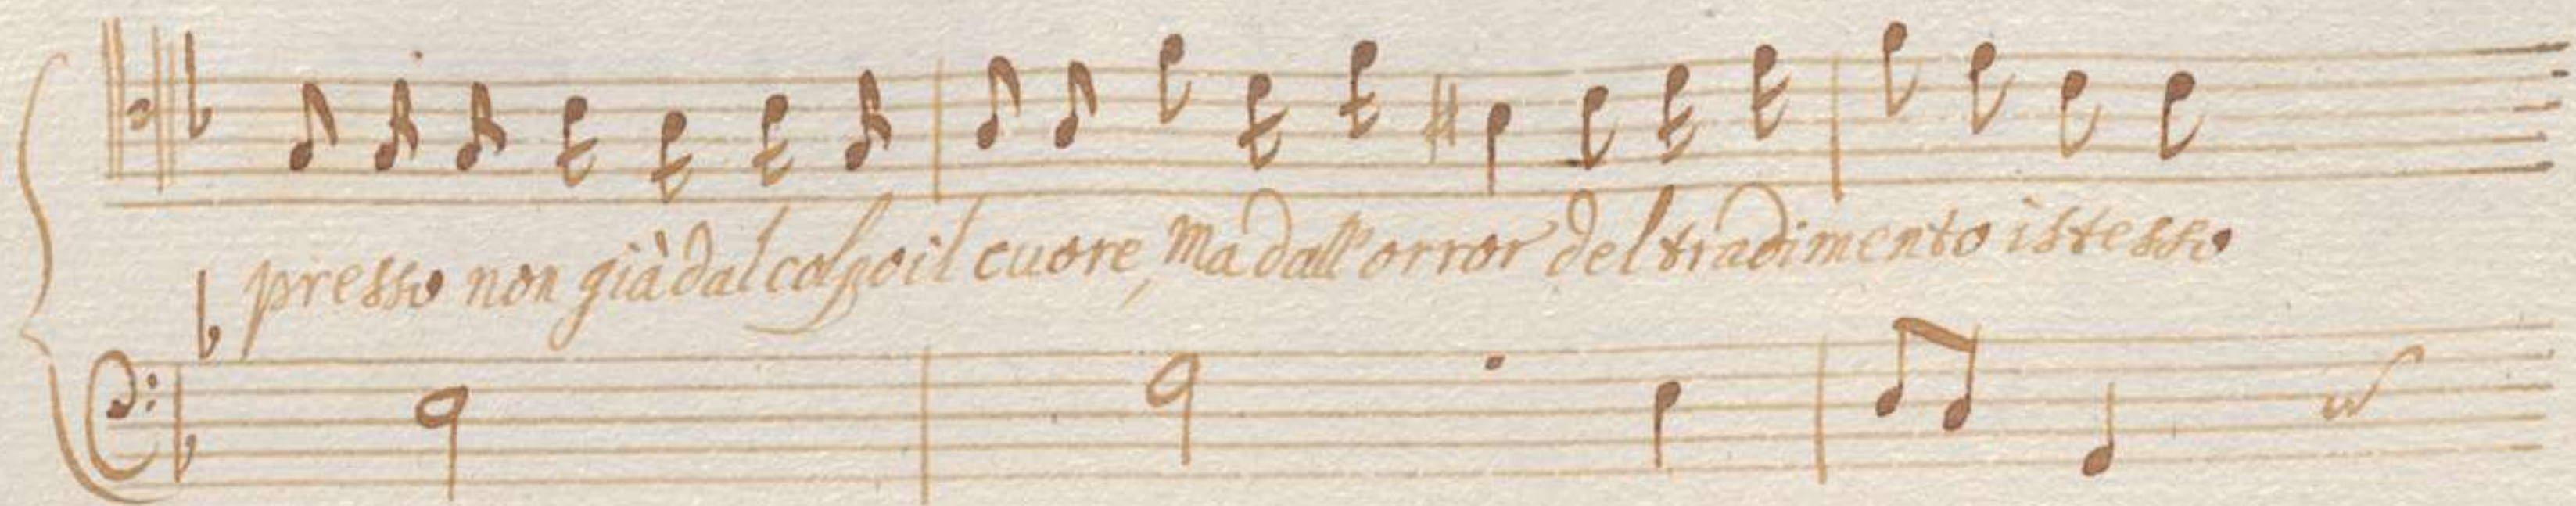 presso non già dal colpo il cuore, Ma dall'orror del tradimento istesso